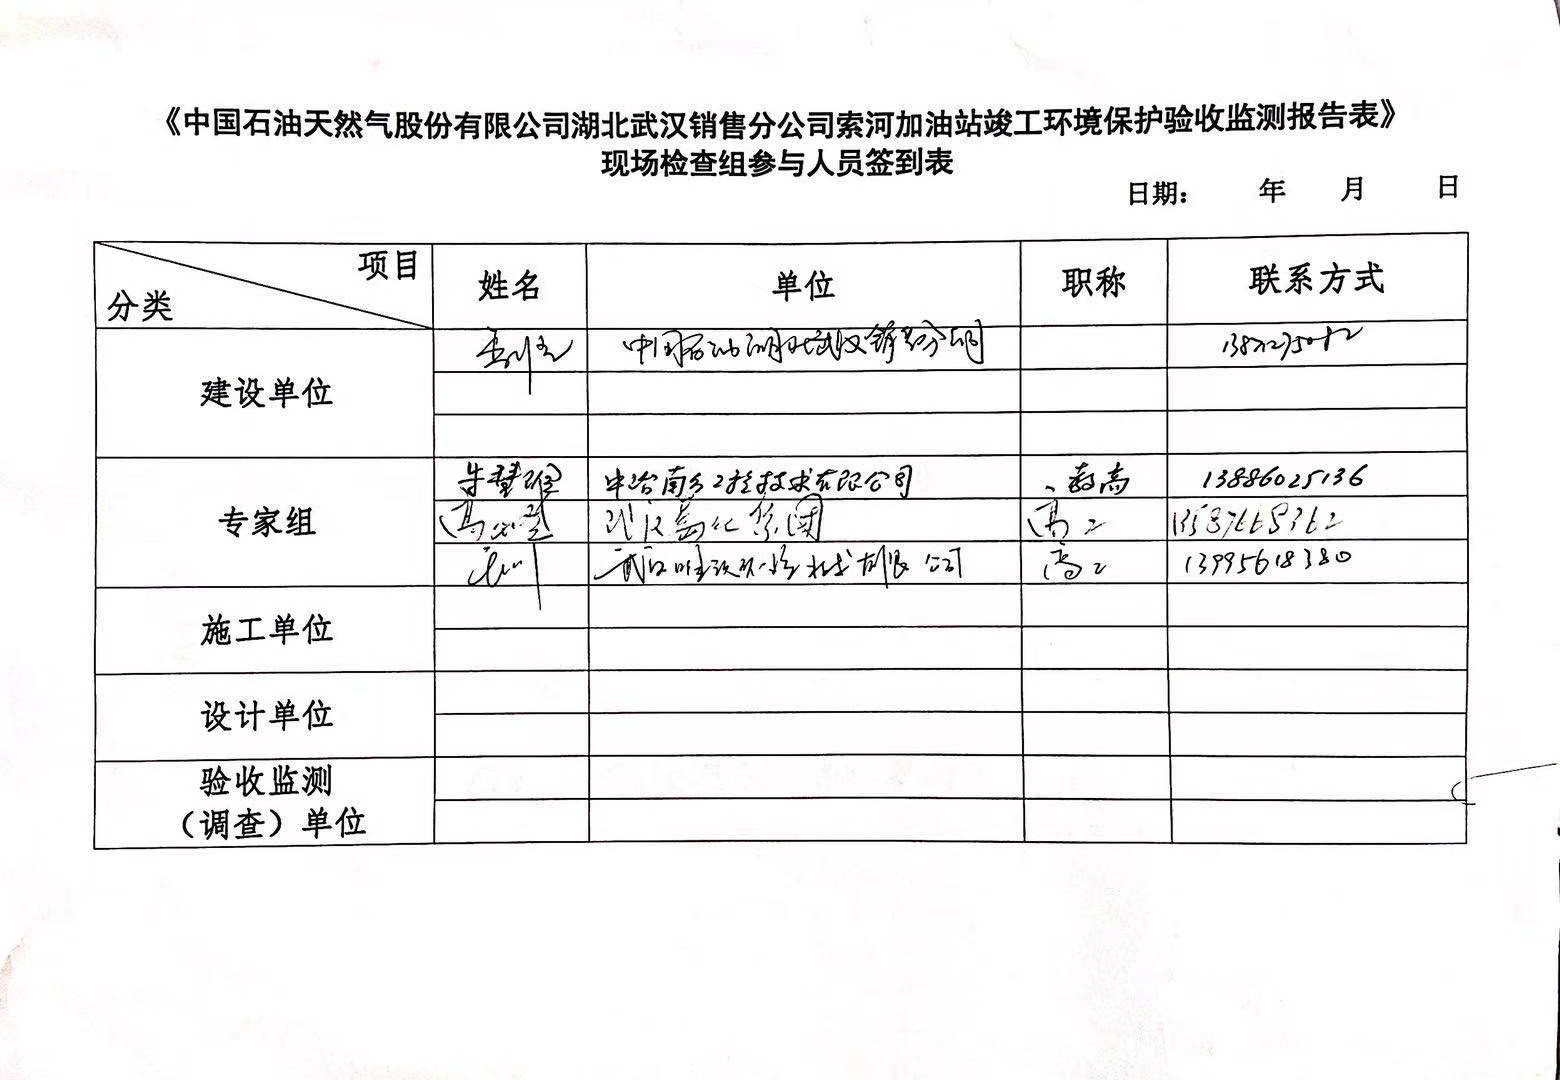 《中国石油天然气股份有限公司湖北武汉销售分公司索河加油站竣工环境保护验收监测报告表》
现场检查组参与人员签到表
日期： 年 月 日
项目
分类 姓名 单位 职称 联系方式
建设单位
中国石油湖北武汉销售分公司
专家组
中冶南方工程技术有限公司 教高 13886025136
武汉葛化集团 高工
武汉 环境技术有限公司 高工 13995618380
施工单位
设计单位
验收监测
（调查）单位